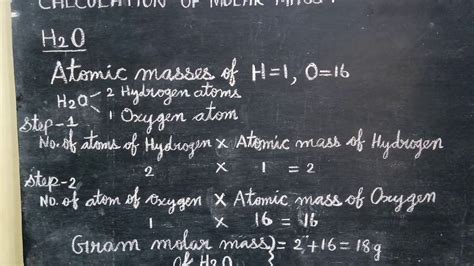 CALCULATION OF MOLAR MASS:
H₂O
Atomic masses of H=1, O=16
H₂O 2 Hydrogen atoms
1 Oxygen atom
Step-1
No. of atoms of Hydrogen × Atomic mass of Hydrogen
2 × 1 = 2
Step-2
No. of atom of oxygen × Atomic mass of Oxygen
1 × 16 = 16
Gram molar mass } = 2+16 = 18g
of H₂O